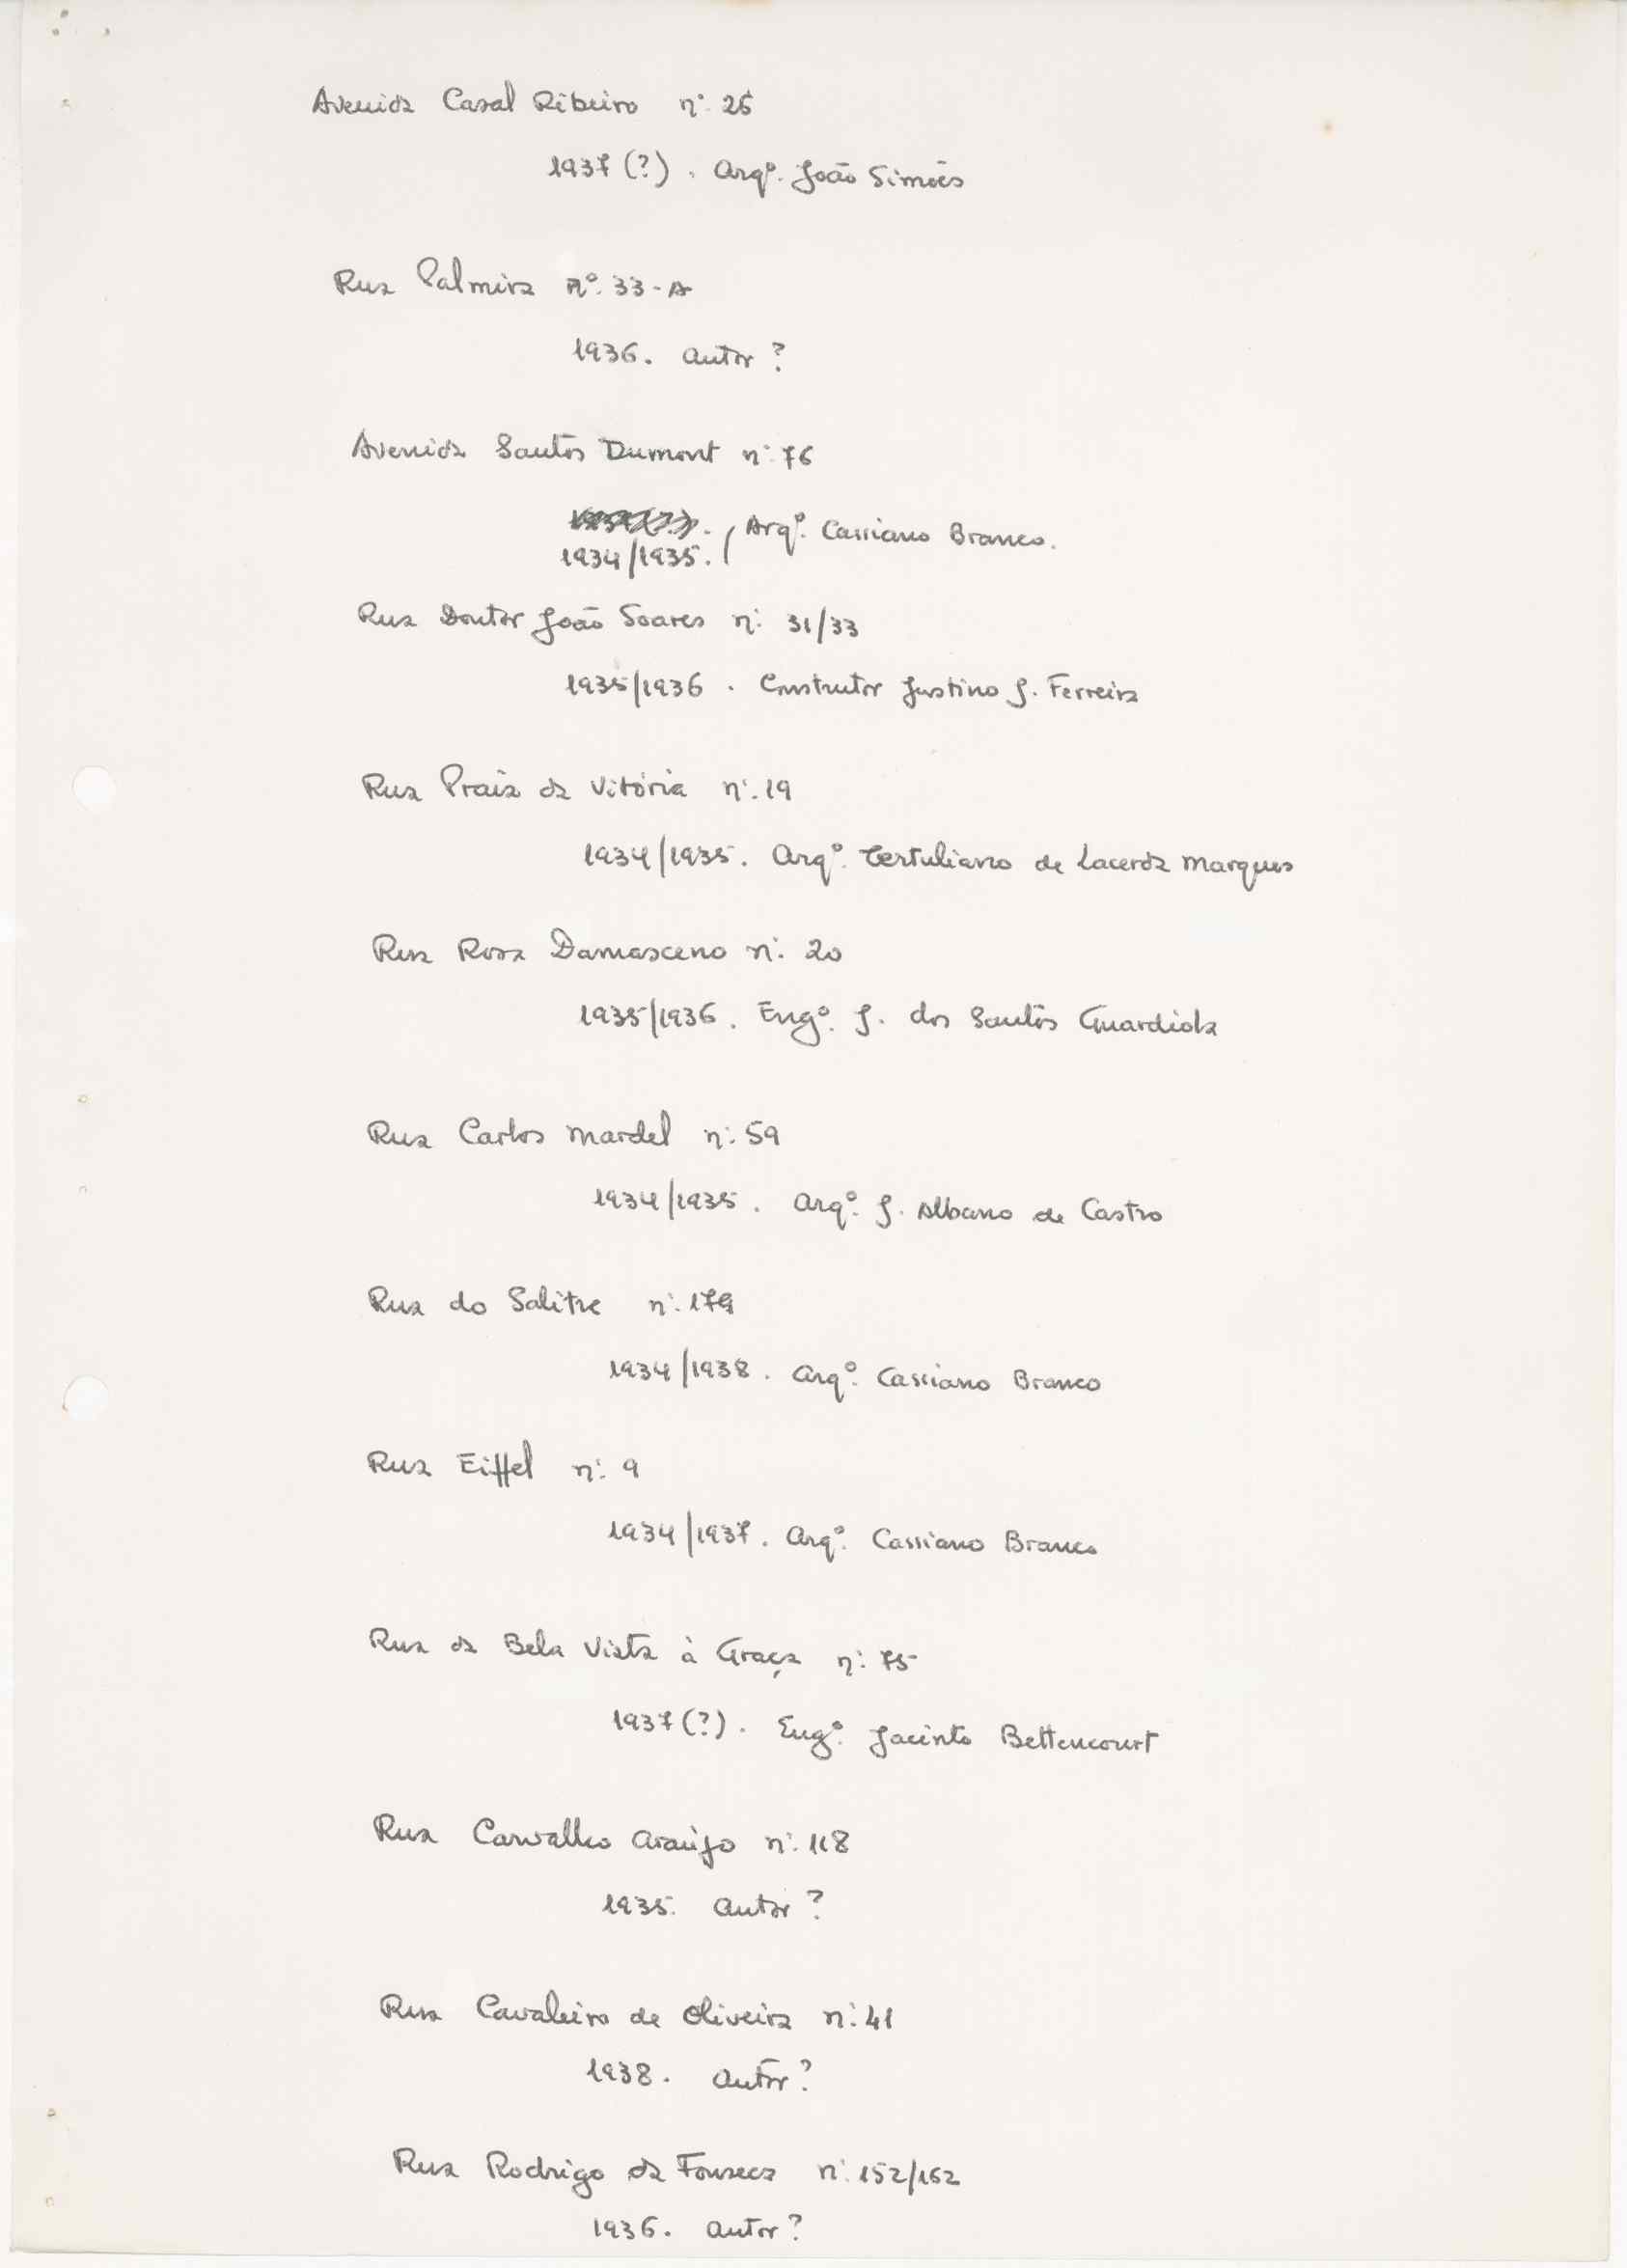 Avenida Casal Ribeiro nº. 26
1937 (?). Arqº. João Simões
Rua Palmira nº. 33-A
1936. Autor?
Avenida Santos Dumont nº. 76
1934/1935. / Arqº. Cassiano Branco.
Rua Doutor João Soares nº. 31/33
1935/1936. Construtor Justino J. Ferreira
Rua Praia da Vitória nº. 19
1934/1935. Arqº. Tertuliano de Lacerda Marques
Rua Rosa Damasceno nº. 20
1935/1936. Engº. J. dos Santos Guardiola
Rua Carlos Mardel nº. 59
1934/1935. Arqº. J. Albano de Castro
Rua do Salitre nº. 179
1934/1938. Arqº. Cassiano Branco
Rua Eiffel nº. 9
1934/1937. Arqº. Cassiano Branco
Rua da Bela Vista à Graça nº. 75
1937 (?). Engº. Jacinto Bettencourt
Rua Carvalho Araújo nº. 118
1935. Autor?
Rua Cavaleiro de Oliveira nº. 41
1938. Autor?
Rua Rodrigo da Fonseca nº. 152/162
1936. Autor?